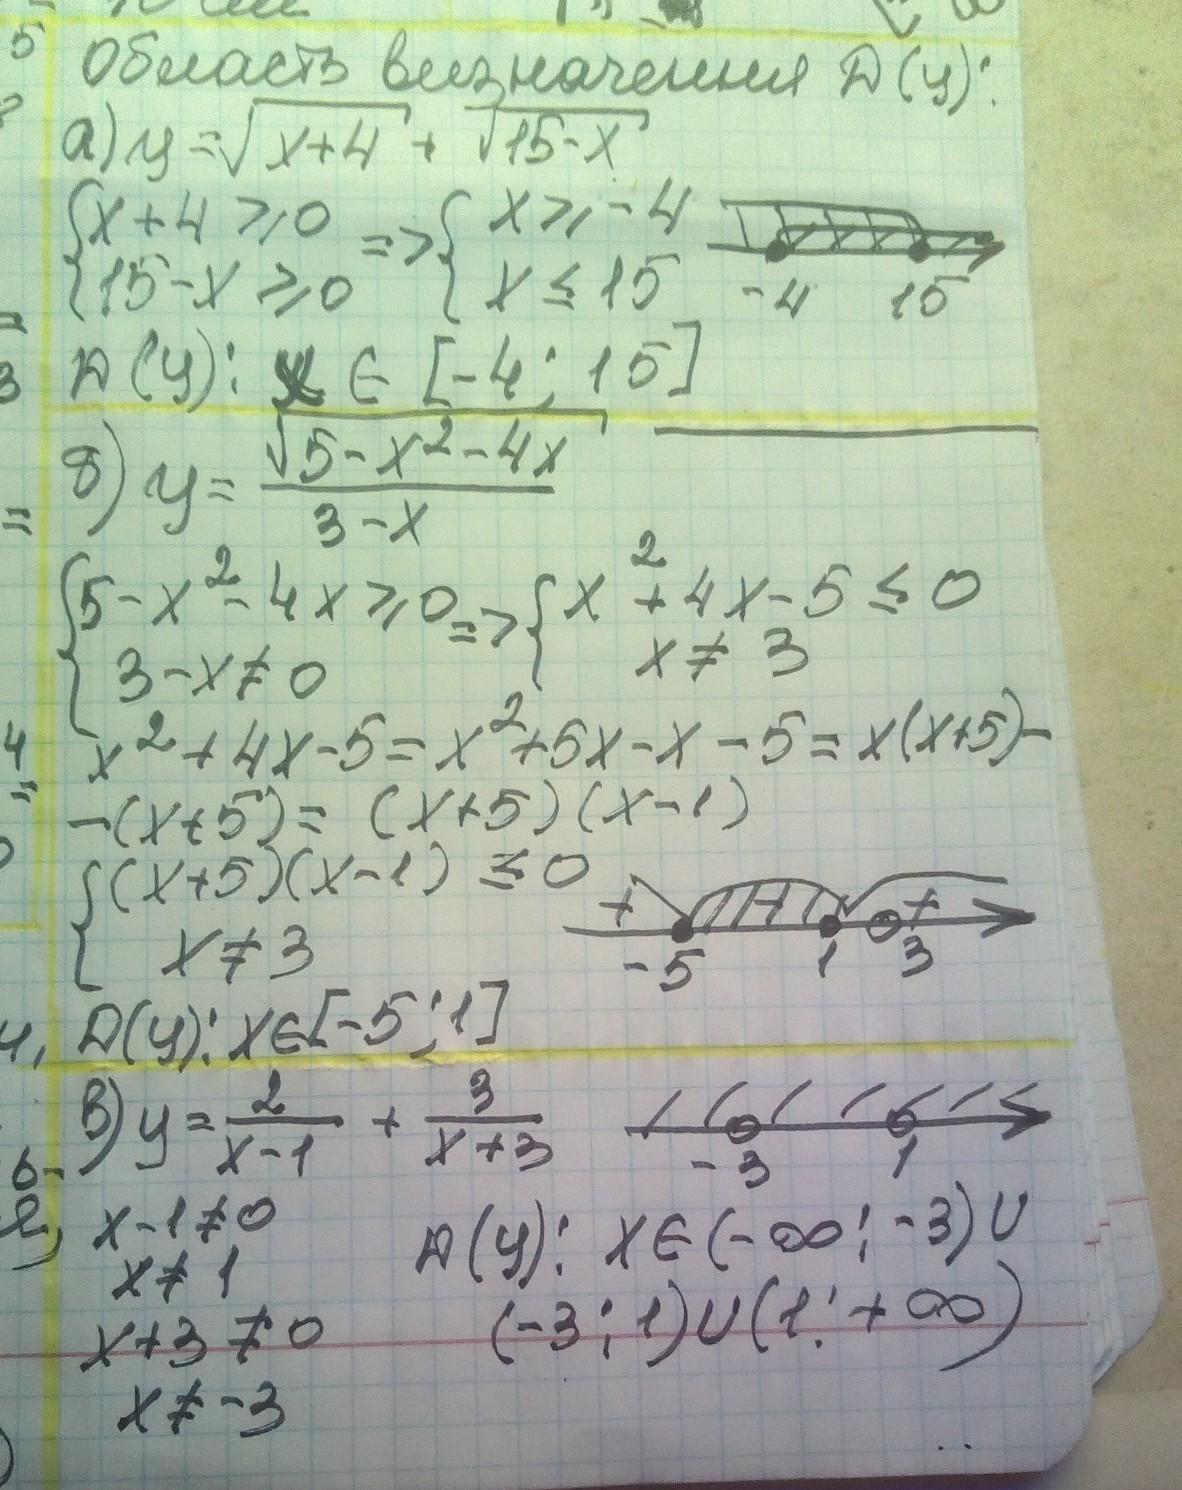 Область визначення D(y):
а) y = √(x+4) + √(15-x)
{ x+4 ⩾ 0 => { x ⩾ -4
{ 15-x ⩾ 0 { x ≤ 15
-4 15
D(y): x ∈ [-4; 15]
б) y = √(5-x²-4x) / (3-x)
{ 5-x²-4x ⩾ 0 => { x²+4x-5 ≤ 0
{ 3-x ≠ 0 { x ≠ 3
x²+4x-5 = x²+5x-x-5 = x(x+5)-
-(x+5) = (x+5)(x-1)
{ (x+5)(x-1) ≤ 0
{ x ≠ 3
+ +
-5 1 3
D(y): x∈[-5; 1]
в) y = 2/(x-1) + 3/(x+3)
-3 1
x-1 ≠ 0
x ≠ 1
x+3 ≠ 0
x ≠ -3
D(y): x∈(-∞; -3)∪
(-3; 1)∪(1; +∞)